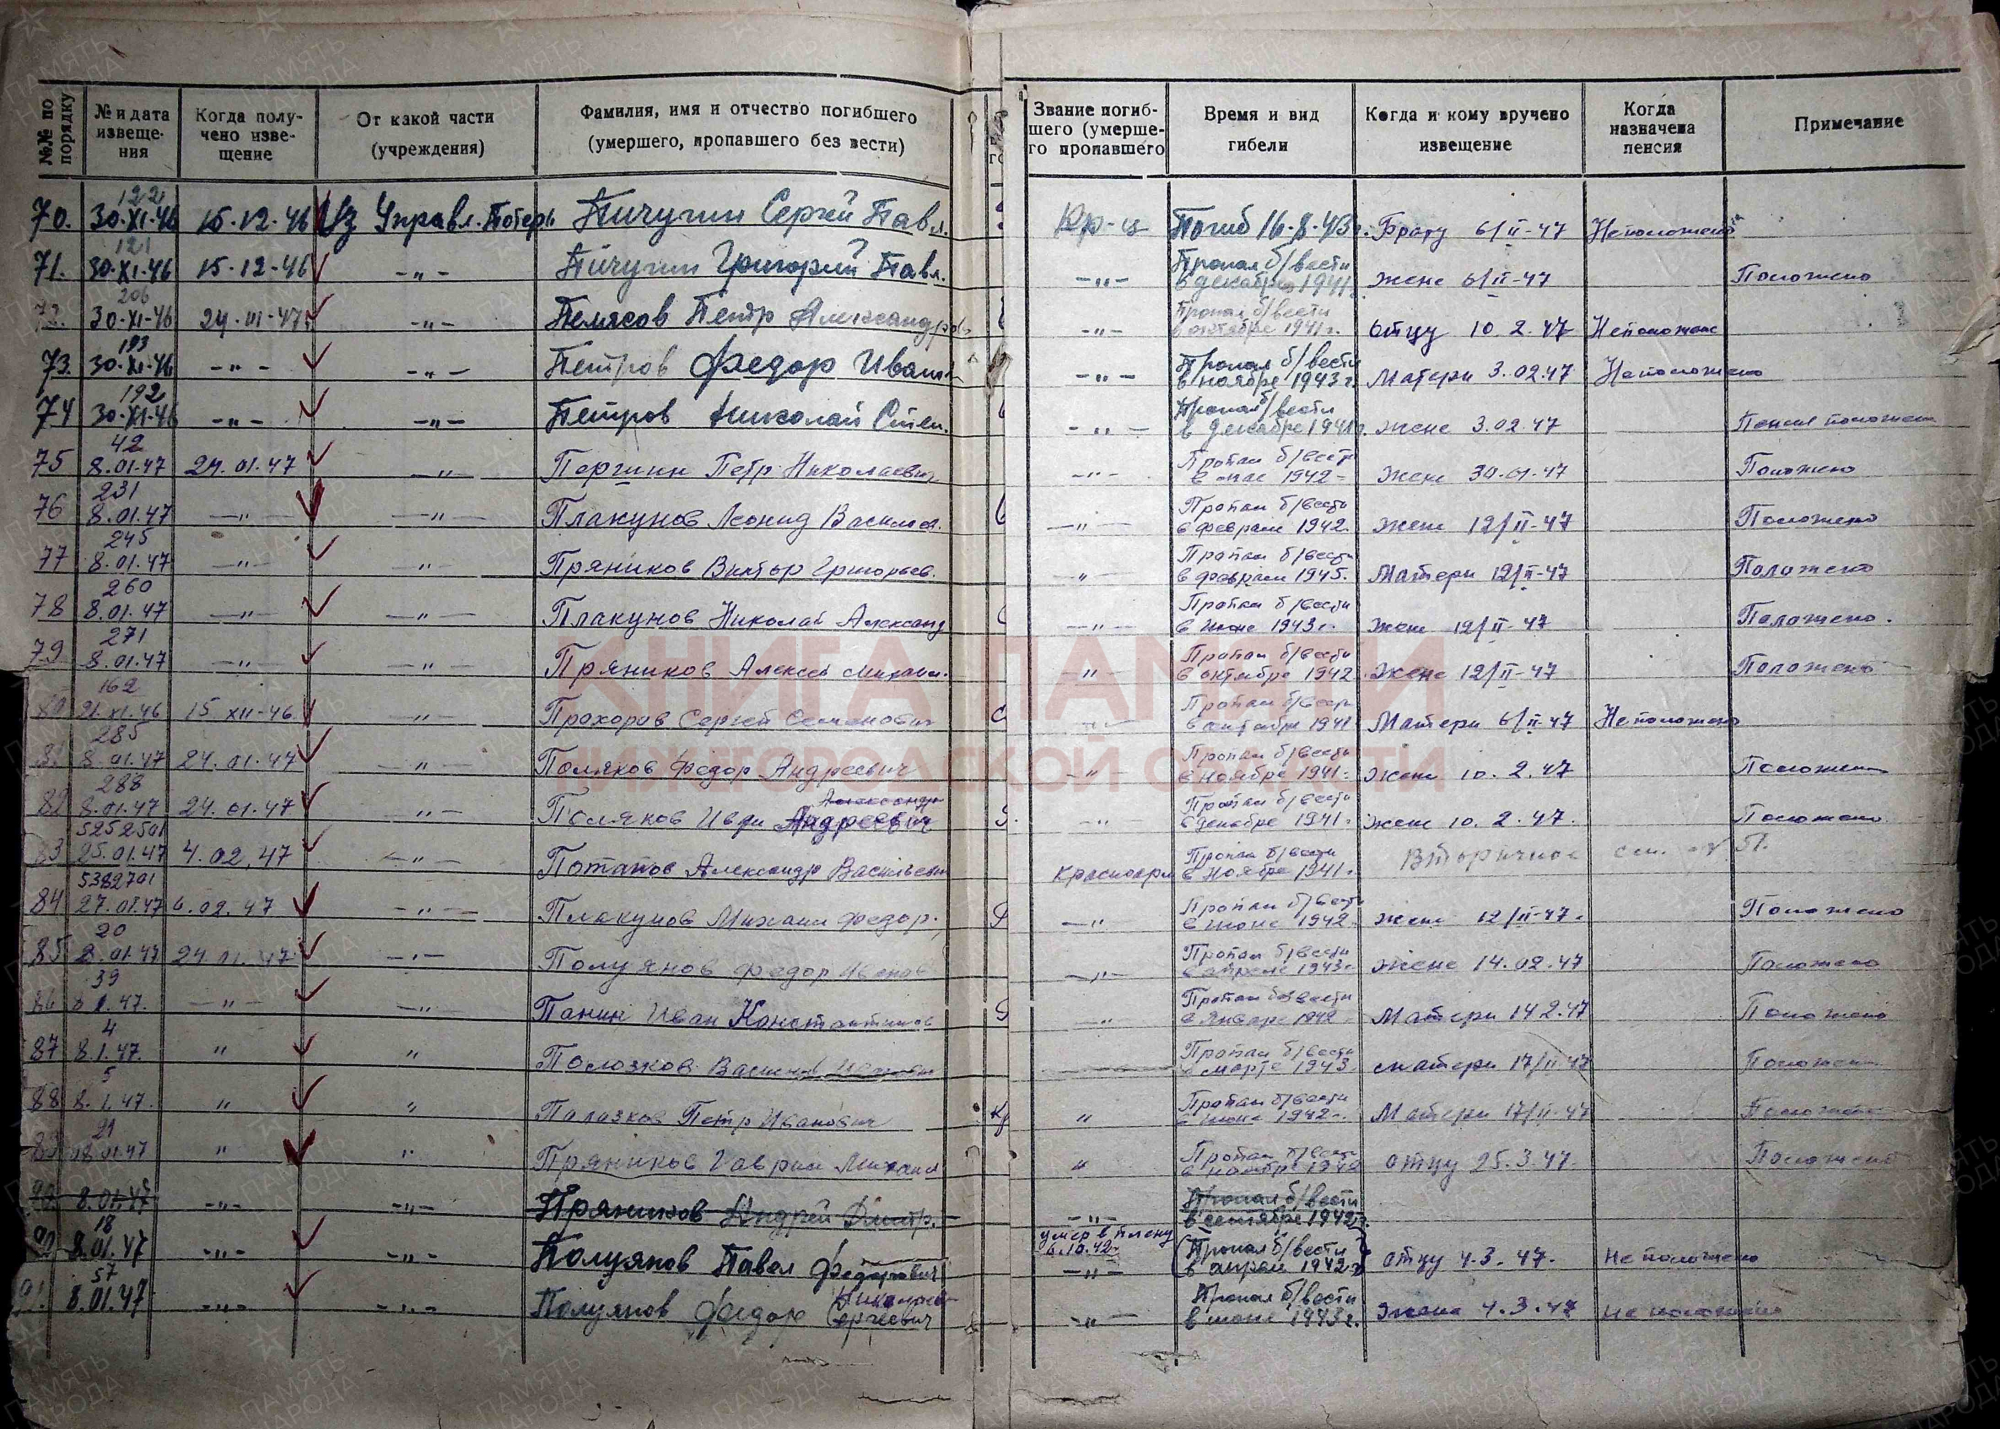 №№ по порядку
№ и дата извеще-ния
Когда полу-чено изве-щение
От какой части (учреждения)
Фамилия, имя и отчество погибшего (умершего, пропавшего без вести)
Звание погиб-шего (умерше-го пропавшего
Время и вид гибели
Когда и кому вручено извещение
Когда назначена пенсия
Примечание
70. 122 30-XI-46 15-12-46 Из Управл. Потерь Пичугин Сергей Павл. Кр-ц Погиб 16-8-43г. Брату 6/II-47 Неположено
71. 121 30-XI-46 15-12-46 -„- Пичугин Григорий Павл. -„- Пропал б/вести в декабре 1941г. Жене 6/II-47 Положено
72. 206 30-XI-46 24-01-47 -„- Пемясов Петр Александров -„- Пропал б/вести в октябре 1941г. Отцу 10.2.47 Неположено
73. 193 30-XI-46 -„- -„- Петров Федор Иван -„- Пропал б/вести в ноябре 1943г. Матери 3.02.47 Неположено
74 192 30-XI-46 -„- -„- Петров Николай Степ. -„- Пропал б/вести в декабре 1941г. Жене 3.02.47 Пенсия положен
75 42 8.01.47 24.01.47 -„- Першин Петр Николаевич -„- Пропал б/вест в мае 1942 Жене 30-01-47 Положено
76 231 8.01.47 -„- -„- Плакунов Леонид Васильев. -„- Пропал б/вести в феврале 1942. Жене 12/II-47 Положено
77 245 8.01.47 -„- -„- Пряников Виктор Григорьев. „ Пропал б/вести в феврале 1945. Матери 12/II-47 Положено
78 260 8.01.47 -„- -„- Плакунов Николай Александ -„- Пропал б/вести в июне 1943г. Жене 12/II-47 Положено.
79 271 8.01.47 -„- -„- Пряников Алексей Михаил. „ Пропал б/вести в октябре 1942 Жене 12/II-47 Положено
80 162 21.XI.46 15 XII-46. -„- Прохоров Сергей Семенович -„- Пропал б/вести в октябре 1941 Матери 6/II-47 Неположено
81 285 8.01.47 24.01.47 -„- Поляков Федор Андреевич -„- Пропал б/вести в ноябре 1941г. Жене 10.2.47 Положено
82 288 8.01.47 24.01.47 -„- Поляков Иван Андреевич Александр -„- Пропал б/вести в декабре 1941г. Жене 10.2.47. Положено.
83 5252501 25.01.47 4.02.47 -„- Потапов Александр Васильевич Красноарм Пропал б/вести в ноябре 1941г. Вторичное см. П.
84 5382701 27.01.47 6.02.47 -„- Плакунов Михаил Федор. -„- Пропал б/вести в июне 1942. Жене 12/II-47. Положено
85 20 8.01.47 24.01.47 -„- Полуянов Федор Иванов -„- Пропал б/вести в апреле 1943г Жене 14.02.47 Положено
86 39 8.1.47. -„- -„- Панин Иван Константинов -„- Пропал без вести в январе 1942 Матери 14.2.47 Положено
87 4 8.1.47. „ „ Полозков Василий Иванович Пропал б/вести в марте 1943 Матери 17/II-47 Положено
88 5 8.1.47. „ „ Палазков Петр Иванович „ Пропал б/вести в июне 1942г. Матери 17/II-47 Положено
89 21 08.01.47 „ „ Пряников Гаврил Михаил „ Пропал б/вести в ноябре 1942 Отцу 25.3.47. Положено
90. 8.01.47 -„- -„- Пряников Андрей Дмитр. -„- Пропал б/вести в сентябре 1942г.
90 18 8.01.47 -„- -„- Полуянов Павел Федорович умер в плену 6.10.42г. -„- (Пропал б/вести в апреле 1942г) Отцу 4.3.47. Не положено
91. 57 8.01.47 -„- -„- Полуянов Федор Сергеевич Николаев -„- Пропал б/вести в июне 1943г. Жене 4.3.47 Не положено
КНИГА ПАМЯТИ
НИЖЕГОРОДСКОЙ ОБЛАСТИ
ПАМЯТЬ НАРОДА